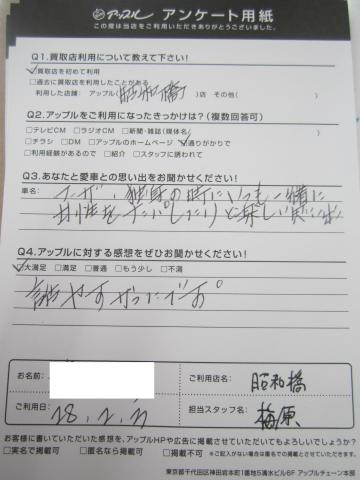 アップル アンケート用紙
この度は当店をご利用いただきありがとうございました。
Q1.買取店利用について教えて下さい!
☑買取店を初めて利用
□過去に買取店を利用したことがある
利用した店舗: アップル(昭和橋)店 その他( )
Q2.アップルをご利用になったきっかけは?(複数回答可)
□テレビCM □ラジオCM □新聞・雑誌(媒体名 )
□チラシ □DM □アップルのホームページ ☑通りがかりで
□利用経験があるので □紹介 □スタッフに誘われて
Q3.あなたと愛車との思い出をお聞かせください!
車名:
独身の時にいつも横に
女性を
Q4.アップルに対する感想をぜひお聞かせください!
☑大満足 □満足 □普通 □もう少し □不満
話やすかったです
お名前:
ご利用店名: 昭和橋
ご利用日: 28.2.
担当スタッフ名: 梅原
お客様に書いていただいた感想を、アップルHPや広告に掲載させていただいてもよろしいでしょうか?
□実名で掲載可 □匿名なら掲載可 □掲載不可 ※ご記入がない場合は匿名での掲載とさせていただきます。
東京都千代田区神田岩本町1番地5清水ビル6F アップルチェーン本部